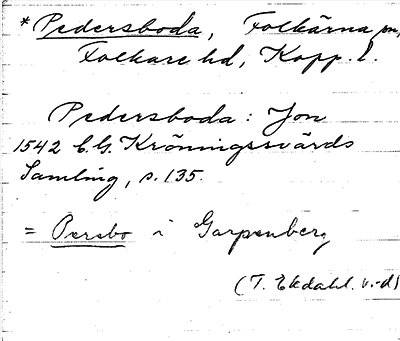 * Pedersboda, Folkärna sn,
Folkare hd, Kopp. l.
Pedersboda: Jon
1542 C.G. Kröningssvärds
Samling, s. 135.
= Persbo i Garpenberg
(T. Ekdahl. v.-d)